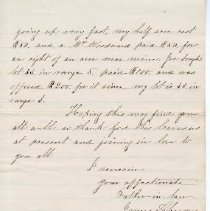 going up very fast, my half acre cost
$50, and a Mr Woodward paid $50, for
an eight of an acre near mine; Joe bought
lot 35 in range 5 paid $100, and was
offered $200, for it since my lot is 34 in
range 5.
Hoping this may find you
all well as thank God this leaves us
at present and joining in love to
you all
I remain
your affectionate
Father in law